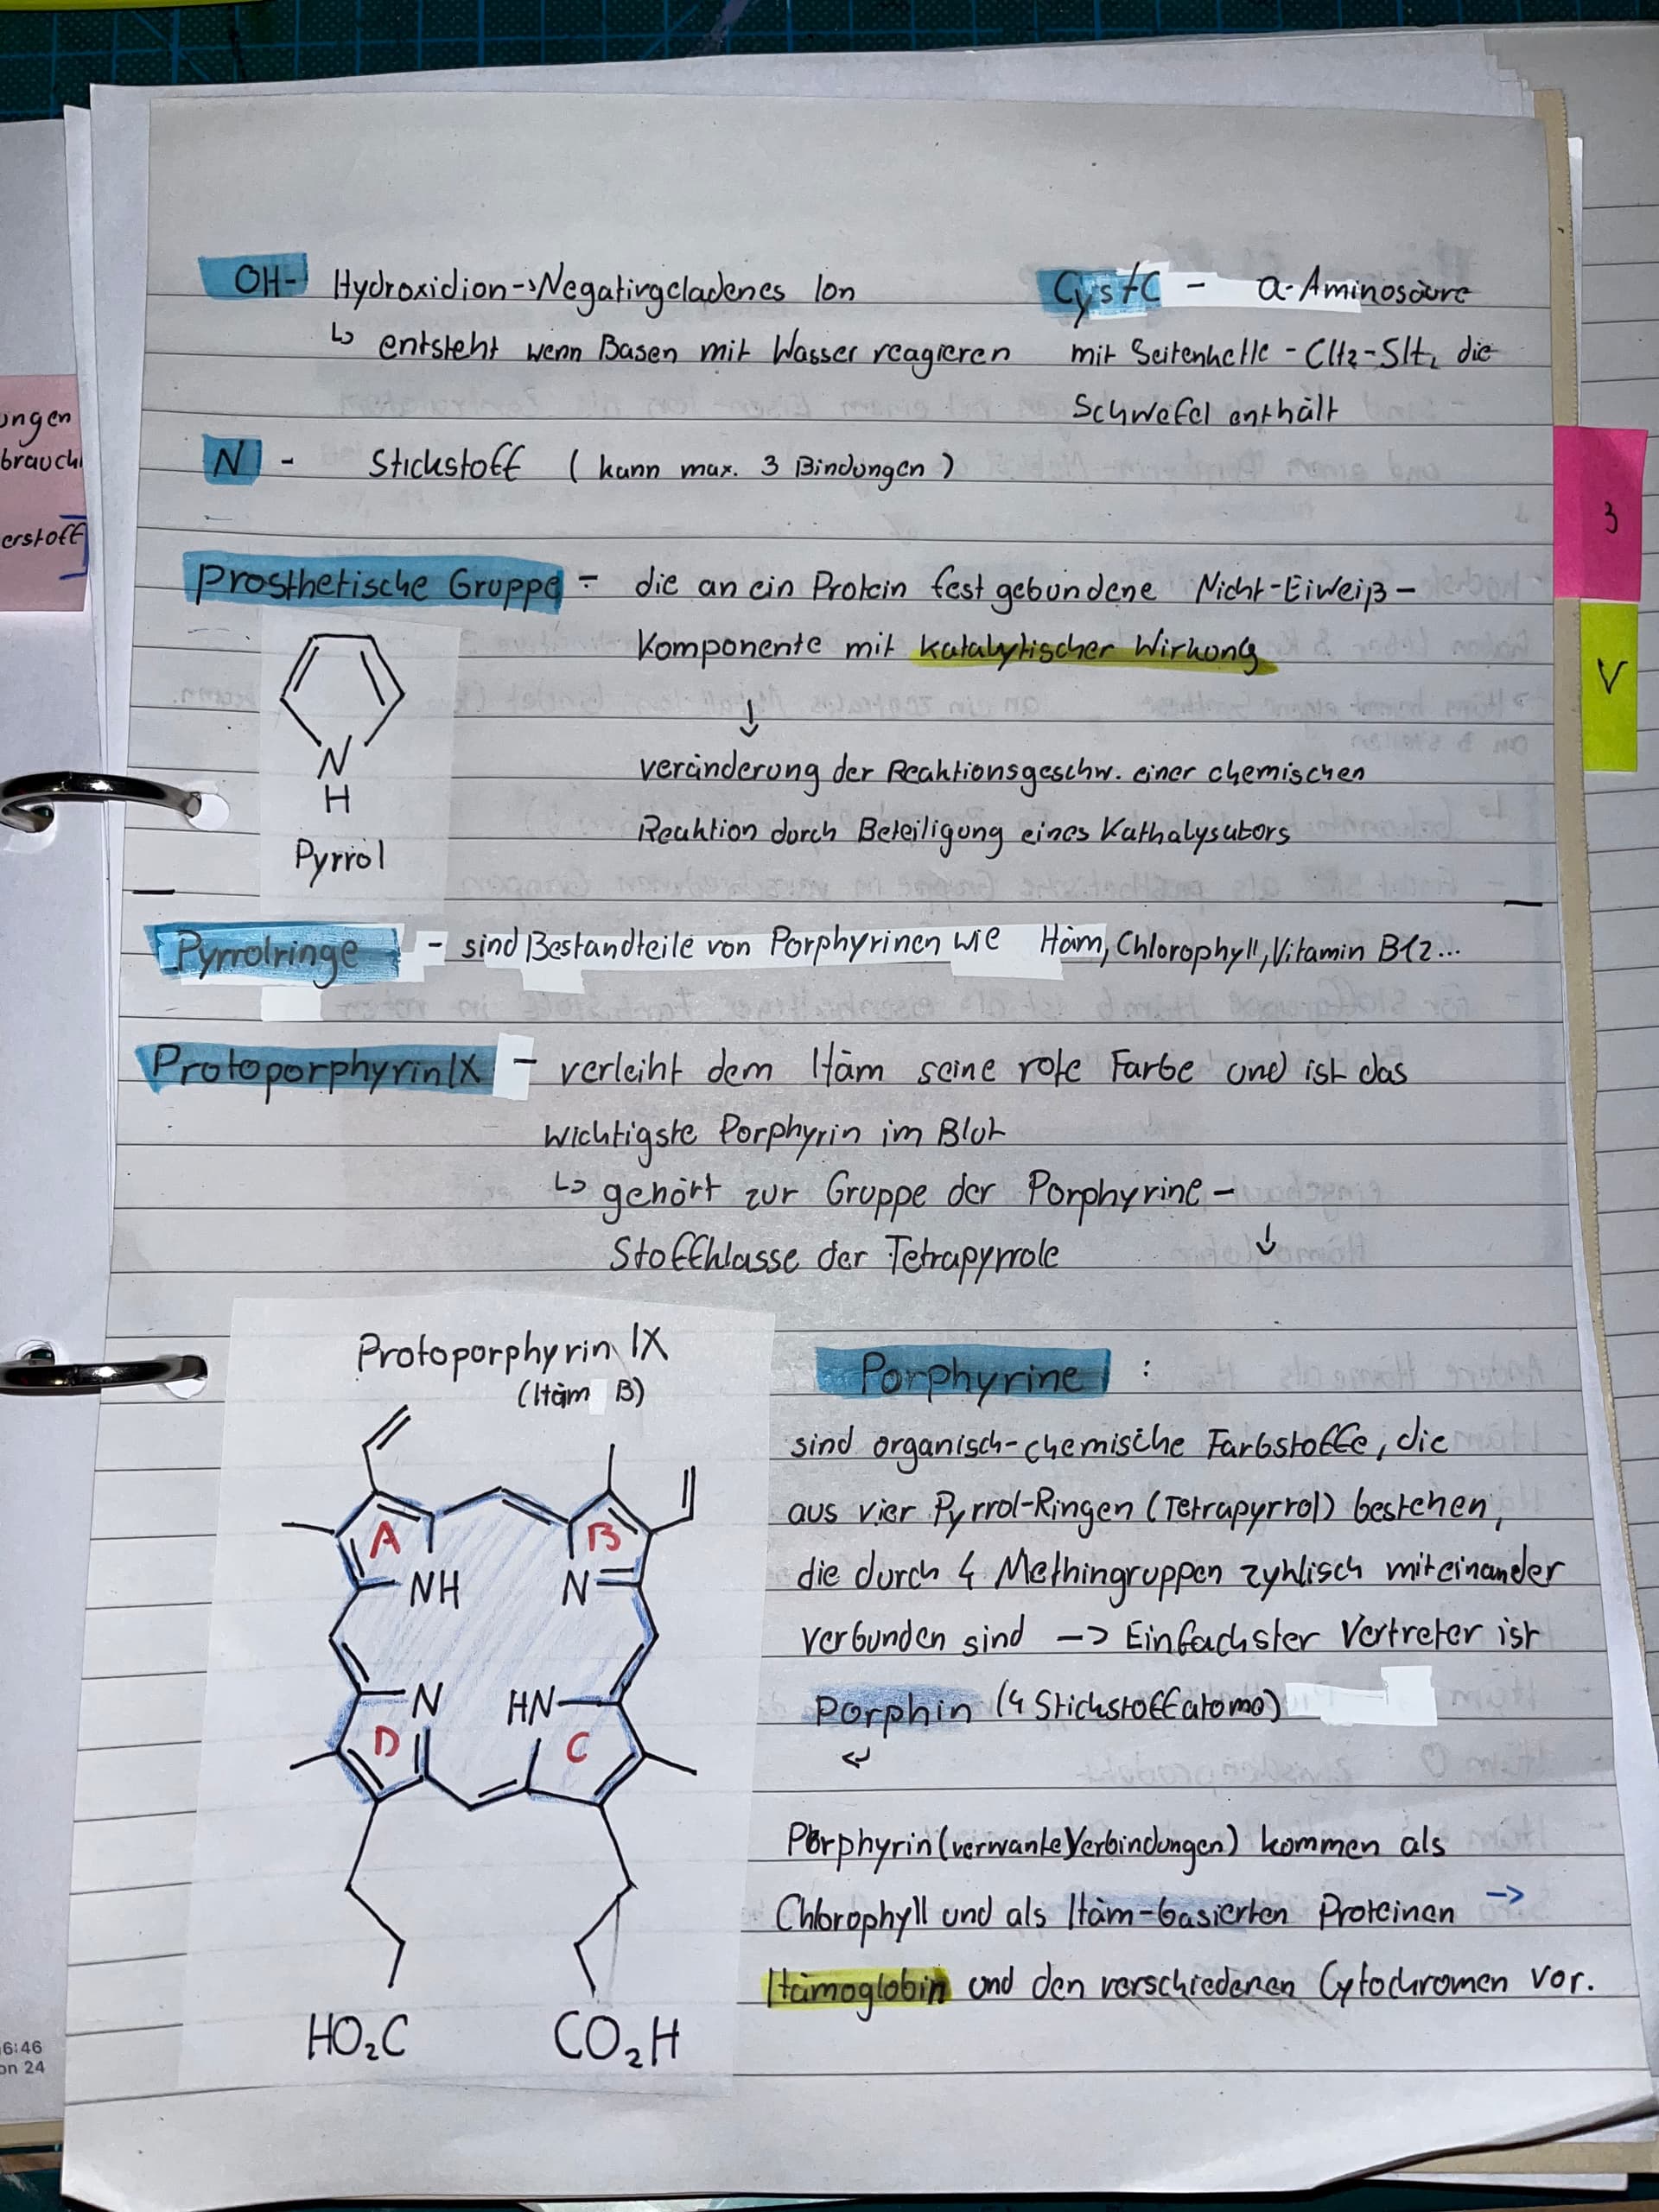 OH- Hydroxidion->Negativgeladenes Ion
↳ entsteht wenn Basen mit Wasser reagieren
Cys/C - α-Aminosäure
mit Seitenkette -CH2-SH, die
Schwefel enthält
N - Stickstoff (kann max. 3 Bindungen)
Prosthetische Gruppe - die an ein Protein fest gebundene Nicht-Eiweiß-
Komponente mit katalytischer Wirkung
↓
veränderung der Reaktionsgeschw. einer chemischen
Reaktion durch Beteiligung eines Kathalysators
N
H
Pyrrol
Pyrrolringe - sind Bestandteile von Porphyrinen wie Häm, Chlorophyll, Vitamin B12...
Protoporphyrin IX - verleiht dem Häm seine rote Farbe und ist das
wichtigste Porphyrin im Blut
↳ gehört zur Gruppe der Porphyrine -
Stoffklasse der Tetrapyrrole ↓
Protoporphyrin IX
(Häm B)
A B
NH N
N HN
D C
HO₂C CO₂H
Porphyrine :
sind organisch-chemische Farbstoffe, die
aus vier Pyrrol-Ringen (Tetrapyrrol) bestehen,
die durch 4 Methingruppen zyklisch miteinander
verbunden sind -> Einfachster Vertreter ist
Porphin (4 Stickstoffatome)
↵
Porphyrin (verwante Verbindungen) kommen als
Chlorophyll und als Häm-basierten Proteinen →
Hämoglobin und den verschiedenen Cytochromen vor.
ungen
brauch
erstoff
3
V
6:46
on 24